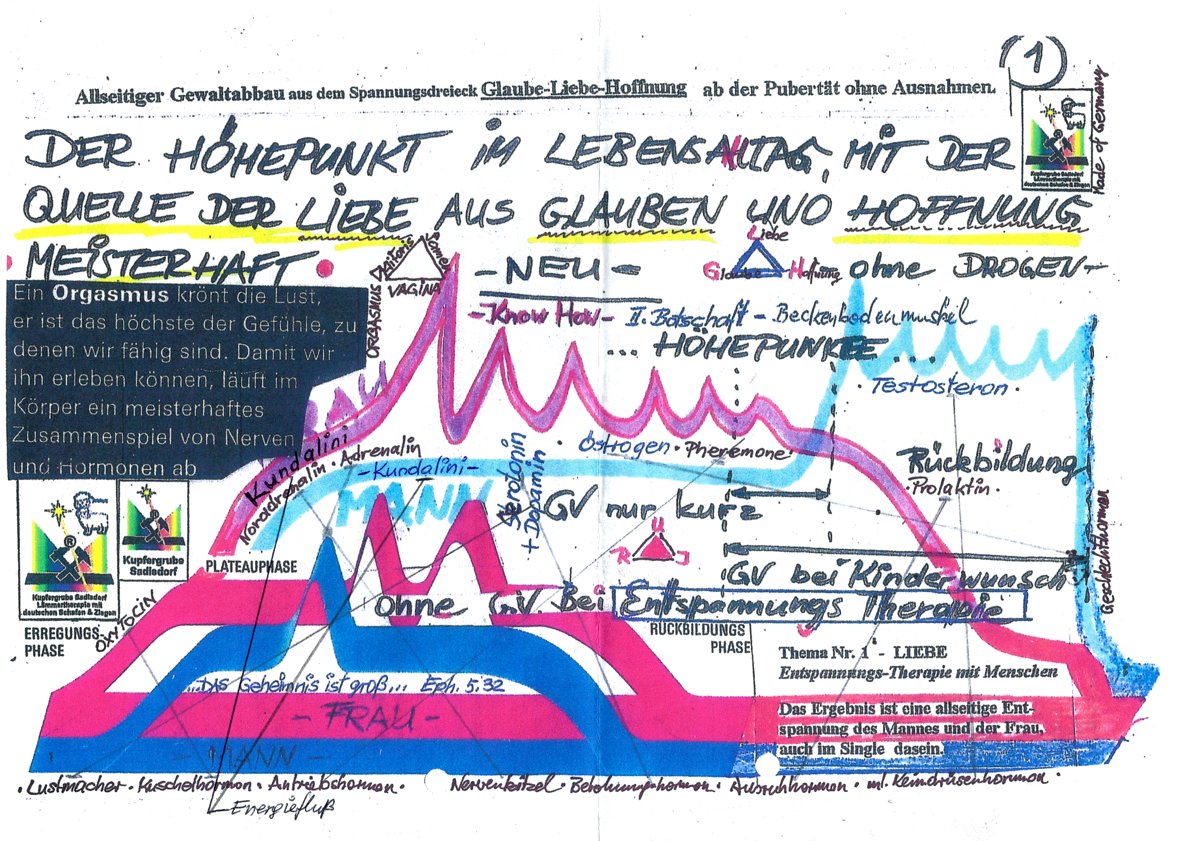 (1)
Allseitiger Gewaltabbau aus dem Spannungsdreieck Glaube-Liebe-Hoffnung ab der Pubertät ohne Ausnahmen.
DER HÖHEPUNKT IM LEBENSALLTAG, MIT DER
QUELLE DER LIEBE AUS GLAUBEN UND HOFFNUNG
MEISTERHAFT
- NEU -
Liebe
Glaube Hoffnung
ohne DROGEN -
Kupfergrube Sadisdorf
Lämmertherapie mit
deutschen Schafen & Ziegen
Made of Germany
ORGASMUS
Klitoris
VAGINA
- Know How - II. Botschaft - Beckenbodenmuskel
... HÖHEPUNKEE ...
Ein Orgasmus krönt die Lust,
er ist das höchste der Gefühle, zu
denen wir fähig sind. Damit wir
ihn erleben können, läuft im
Körper ein meisterhaftes
Zusammenspiel von Nerven
und Hormonen ab
FRAU
· Testosteron ·
Kundalini
Noradrenalin · Adrenalin
- Kundalini -
· Östrogen · Pheremone ·
Serotonin
+ Dopamin
Rückbildung
· Prolaktin ·
MANN
GV nur kurz
Kupfergrube
Sadisdorf
PLATEAUPHASE
R U J
GV bei Kinderwunsch
Geschlechtsformer
Kupfergrube Sadisdorf
Lämmertherapie mit
deutschen Schafen & Ziegen
ohne GV Bei Entspannungs Therapie
OXYTOCIN
ERREGUNGS-
PHASE
RÜCKBILDUNGS
PHASE
Thema Nr. 1 - LIEBE
Entspannungs-Therapie mit Menschen
...DAS Geheimnis ist groß... Eph. 5:32
- FRAU -
Das Ergebnis ist eine allseitige Ent-
spannung des Mannes und der Frau,
auch im Single dasein.
- MANN -
· Lustmacher · Kuschelhormon · Antriebshormon ·
Nervenkitzel · Belohnungshormon · Ausruhhormon · ml. Keimdrüsenhormon ·
Energiefluß